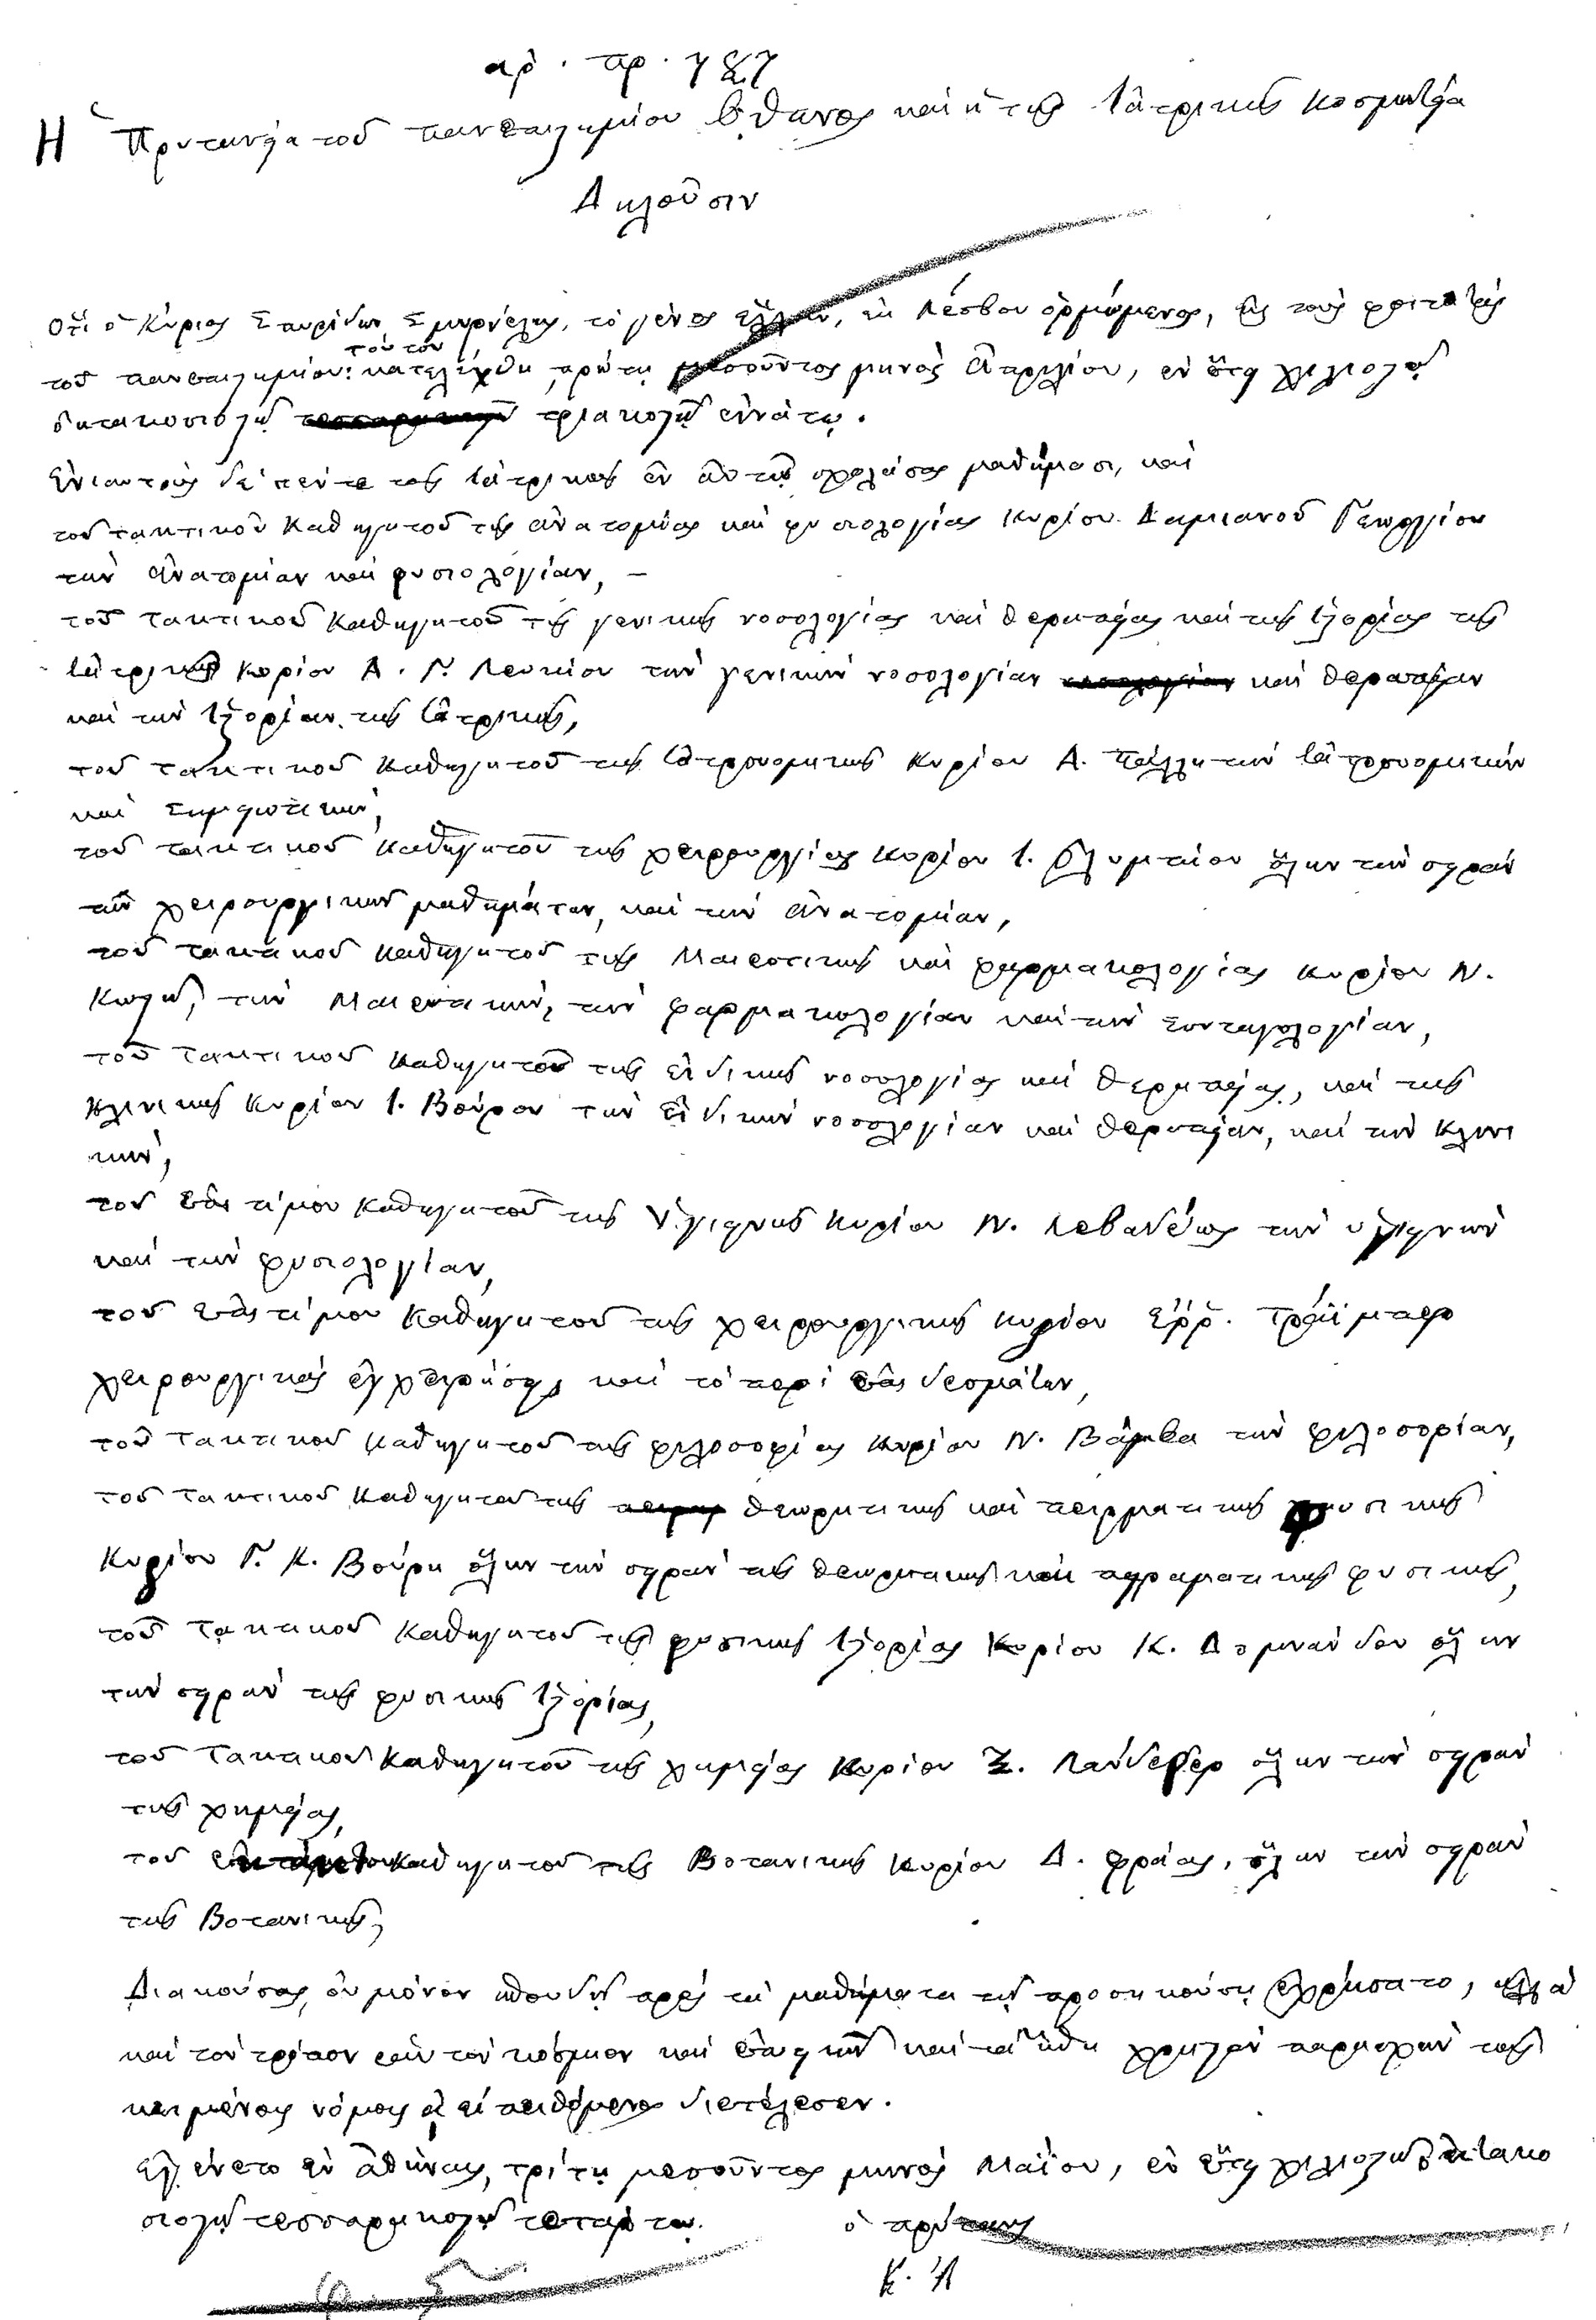 αρ. πρ. 787
Η Πρυτανεία τοῦ πανεπιστημίου Ὄθωνος καὶ ἡ τῆς Ἰατρικῆς Κοσμητεία
Δηλοῦσιν
Ὅτι ὁ Κύριος Σπυρίδων, τὸ γένος Ἕλλην, ἐκ Λέσβου ὁρμώμενος, εἰς τοὺς φοιτητὰς
τούτου
τοῦ πανεπιστημίου κατελέχθη πρώτῃ μεσοῦντος μηνὸς Ἀπριλίου, ἐν ἔτει χιλιοστῷ
ὀκτακοσιοστῷ τριακοστῷ ἐννάτῳ.
Ἐνιαυτοὺς δὲ πέντε τοῖς ἰατρικοῖς ἐν αὐτῷ σχολάσας μαθήμασι, καὶ
τοῦ τακτικοῦ Καθηγητοῦ τῆς ἀνατομίας καὶ φυσιολογίας Κυρίου Δαμιανοῦ Γεωργίου
τὴν ἀνατομίαν καὶ φυσιολογίαν, –
τοῦ τακτικοῦ Καθηγητοῦ τῆς γενικῆς νοσολογίας καὶ θεραπείας καὶ τῆς ἱστορίας τῆς
Ἰατρικῆς Κυρίου Α. Γ. Λευκίου τὴν γενικὴν νοσολογίαν καὶ θεραπείαν
καὶ τὴν ἱστορίαν τῆς Ἰατρικῆς,
τοῦ τακτικοῦ Καθηγητοῦ τῆς Ἰατρονομικῆς Κυρίου Α. Πάλλη τὴν Ἰατρονομικὴν
καὶ Σημειωτικήν,
τοῦ τακτικοῦ Καθηγητοῦ τῆς χειρουργίας Κυρίου Ι. Ὀλυμπίου ὅλην τὴν σειρὰν
τῶν χειρουργικῶν μαθημάτων, καὶ τὴν ἀνατομίαν,
τοῦ τακτικοῦ καθηγητοῦ τῆς Μαιευτικῆς καὶ φαρμακολογίας Κυρίου Ν.
Κωστῆ, τὴν Μαιευτικήν, τὴν φαρμακολογίαν καὶ τὴν Συνταγολογίαν,
τοῦ τακτικοῦ Καθηγητοῦ τῆς εἰδικῆς νοσολογίας καὶ θεραπείας, καὶ τῆς
Κλινικῆς Κυρίου Ι. Βούρου τὴν εἰδικὴν νοσολογίαν καὶ θεραπείαν, καὶ τὴν Κλινι
κήν,
τοῦ ἐπιτίμου Καθηγητοῦ τῆς Ὑγιεινῆς Κυρίου Ν. Λεβαδέως τὴν ὑγιεινὴν
καὶ τὴν φυσιολογίαν,
τοῦ ἐπιτίμου Καθηγητοῦ τῆς χειρουργικῆς Κυρίου Ἐῤῥ. Τράϊμπερ
χειρουργικὰς ἐγχειρήσεις καὶ τὸ περὶ ἐπιδεσμάτων,
τοῦ τακτικοῦ Καθηγητοῦ τῆς φιλοσοφίας Κυρίου Ν. Βάμβα τὴν φιλοσοφίαν,
τοῦ τακτικοῦ Καθηγητοῦ τῆς θεωρητικῆς καὶ πειραματικῆς φυσικῆς
Κυρίου Γ. Κ. Βούρη ὅλην τὴν σειρὰν τῆς θεωρητικῆς καὶ πειραματικῆς φυσικῆς,
τοῦ τακτικοῦ Καθηγητοῦ τῆς φυσικῆς ἱστορίας Κυρίου Κ. Δομνάνδου ὅλην
τὴν σειρὰν τῆς φυσικῆς ἱστορίας,
τοῦ τακτικοῦ Καθηγητοῦ τῆς χημείας Κυρίου Ξ. Λάνδερερ ὅλην τὴν σειρὰν
τῆς χημείας,
τοῦ Καθηγητοῦ τῆς Βοτανικῆς Κυρίου Δ. Φράας, ὅλην τὴν σειρὰν
τῆς Βοτανικῆς,
Διακούσας, οὐ μόνον σπουδῇ πρὸς τὰ μαθήματα τῇ προσηκούσῃ ἐχρήσατο, ἀλλὰ
καὶ τὸν τρόπον ἑαυτὸν κόσμιον καὶ ἐπιεικῆ καὶ τὰ ἤθη χρηστὸν παρασχὼν τοῖς
κειμένοις νόμοις ἀεὶ πειθόμενος διετέλεσεν.
Ἐγένετο ἐν Ἀθήναις, τρίτῃ μεσοῦντος μηνὸς Μαΐου, ἐν ἔτει χιλιοστῷ ὀκτακο
σιοστῷ τεσσαρακοστῷ τετάρτῳ. ὁ πρύτανις